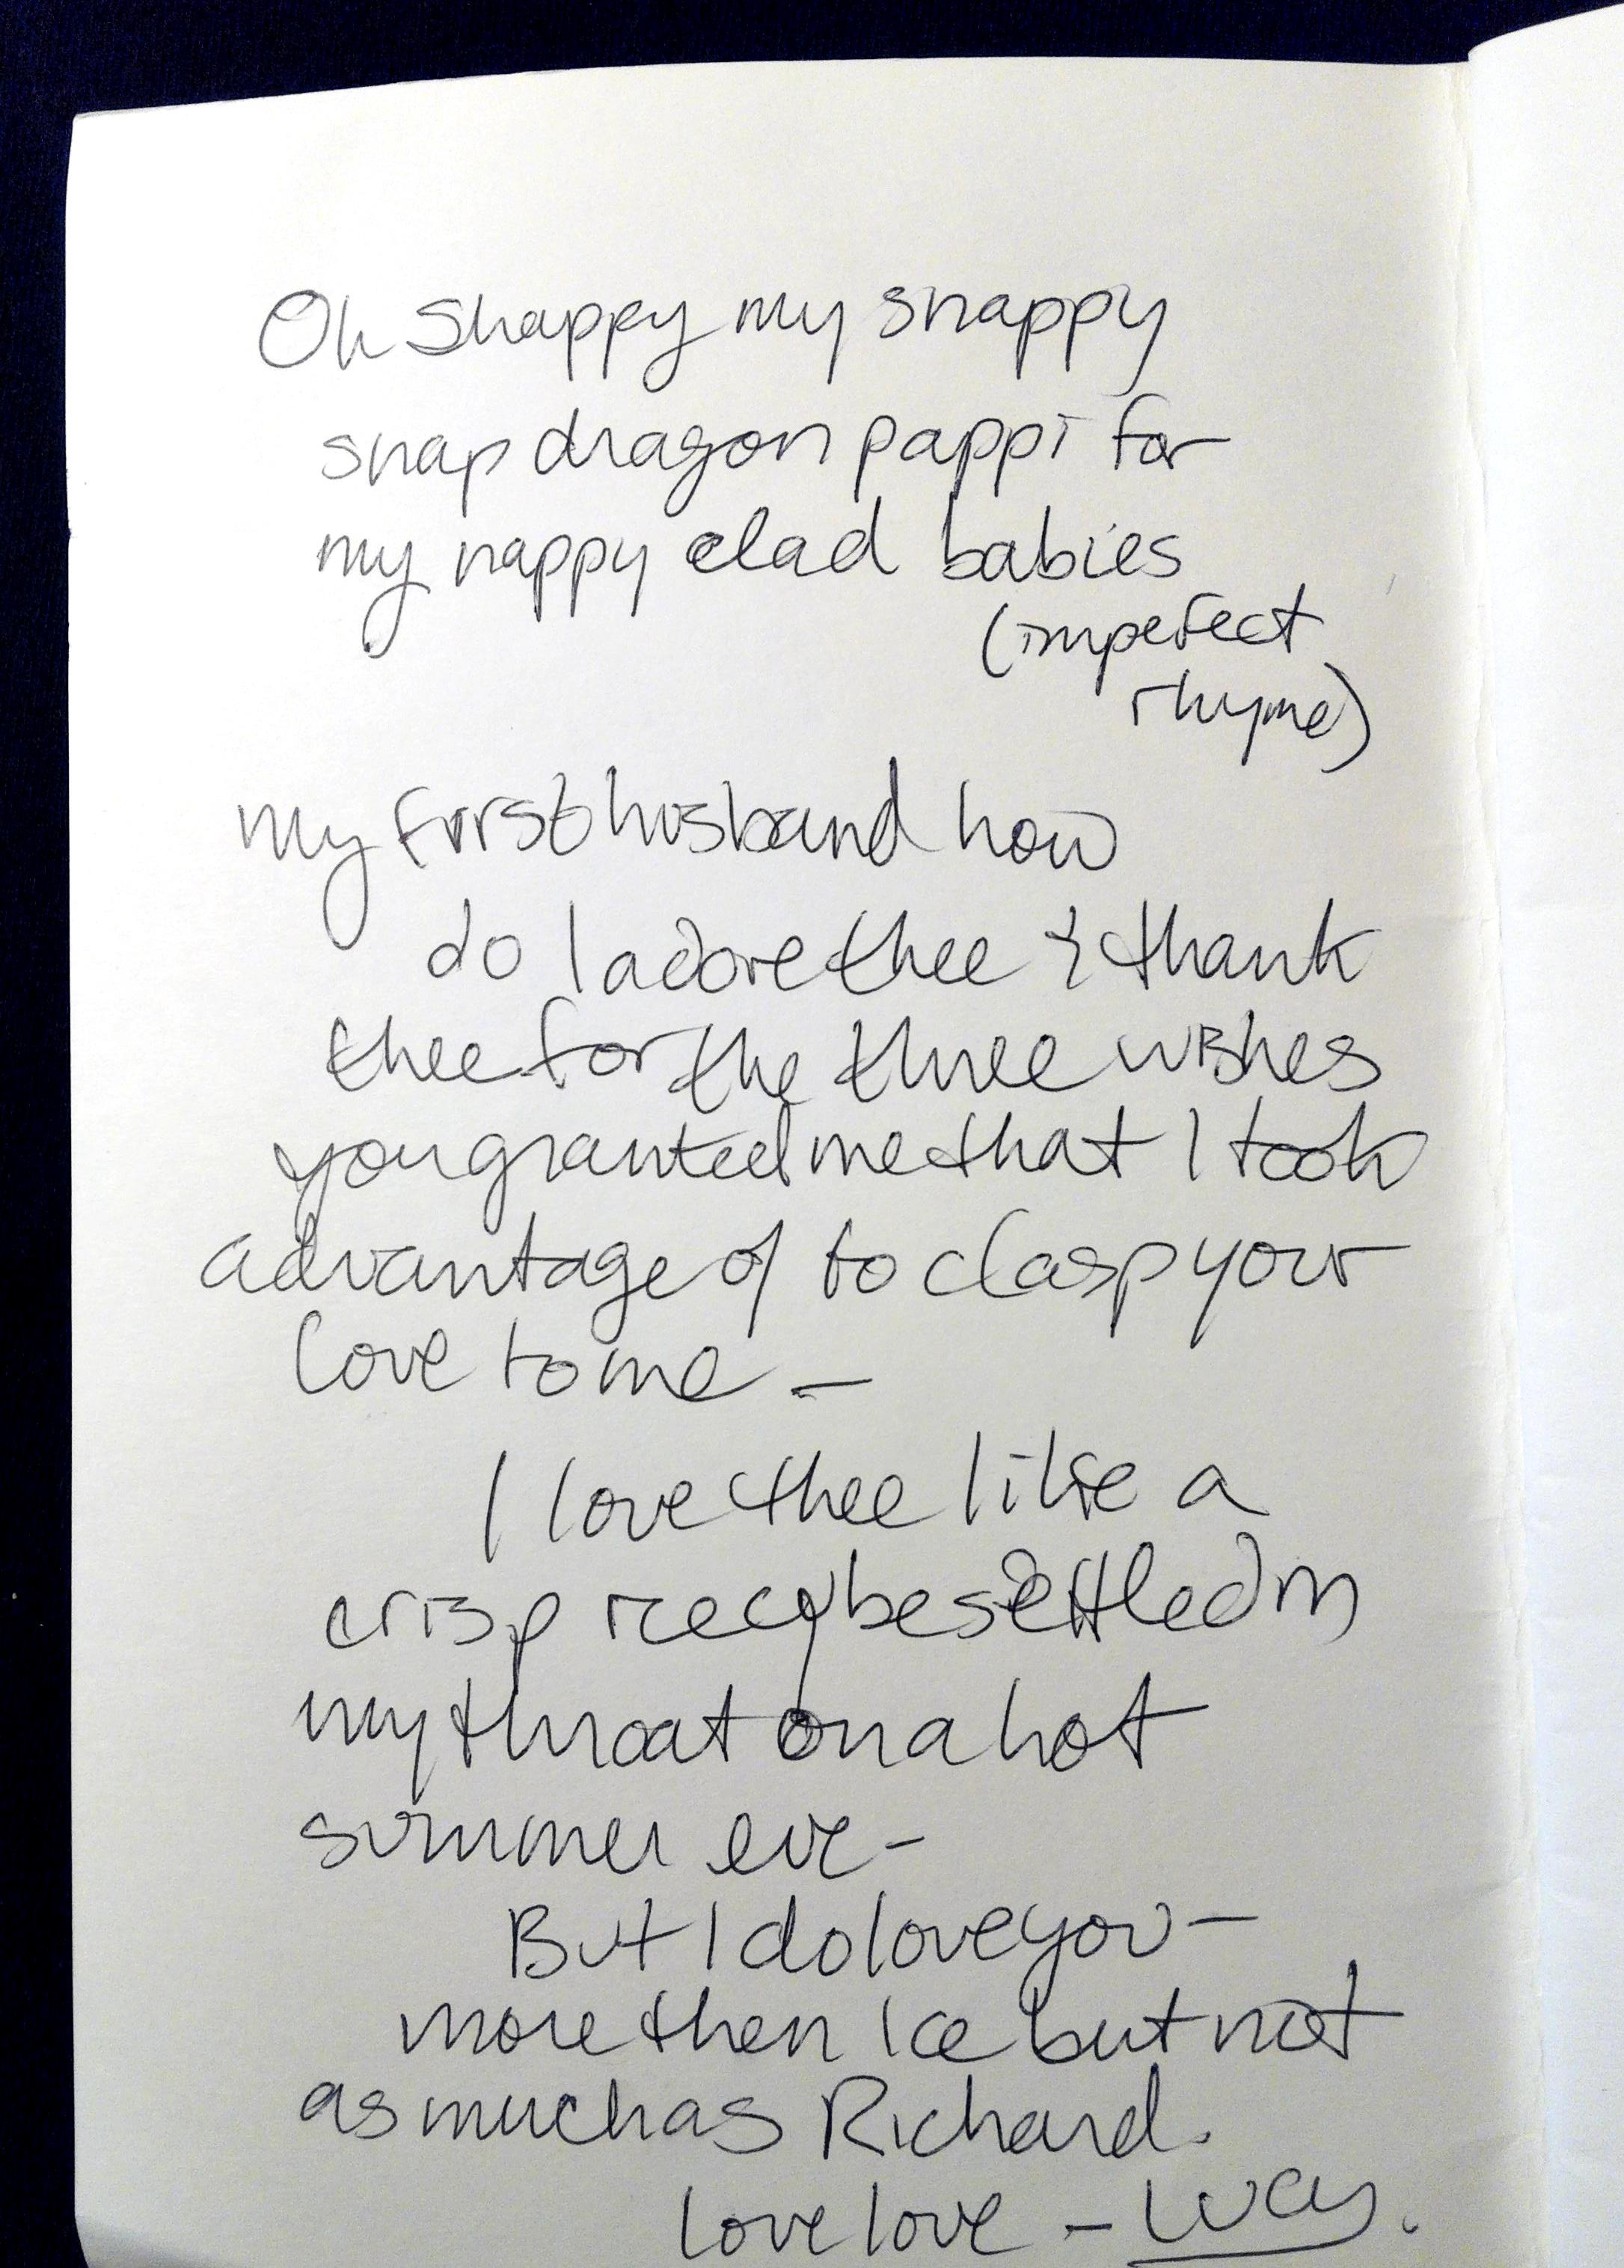 Oh Shappy my snappy
snap dragon pappi for
my nappy clad babies
(imperfect
rhyme)
My first husband how
do I adore thee & thank
thee for the three wishes
you granted me that I took
advantage of to clasp your
love to me –
I love thee like a
crisp ice cube settled in
my throat on a hot
summer eve –
But I do love you –
more then ice but not
as much as Richard.
love love – Lucy.